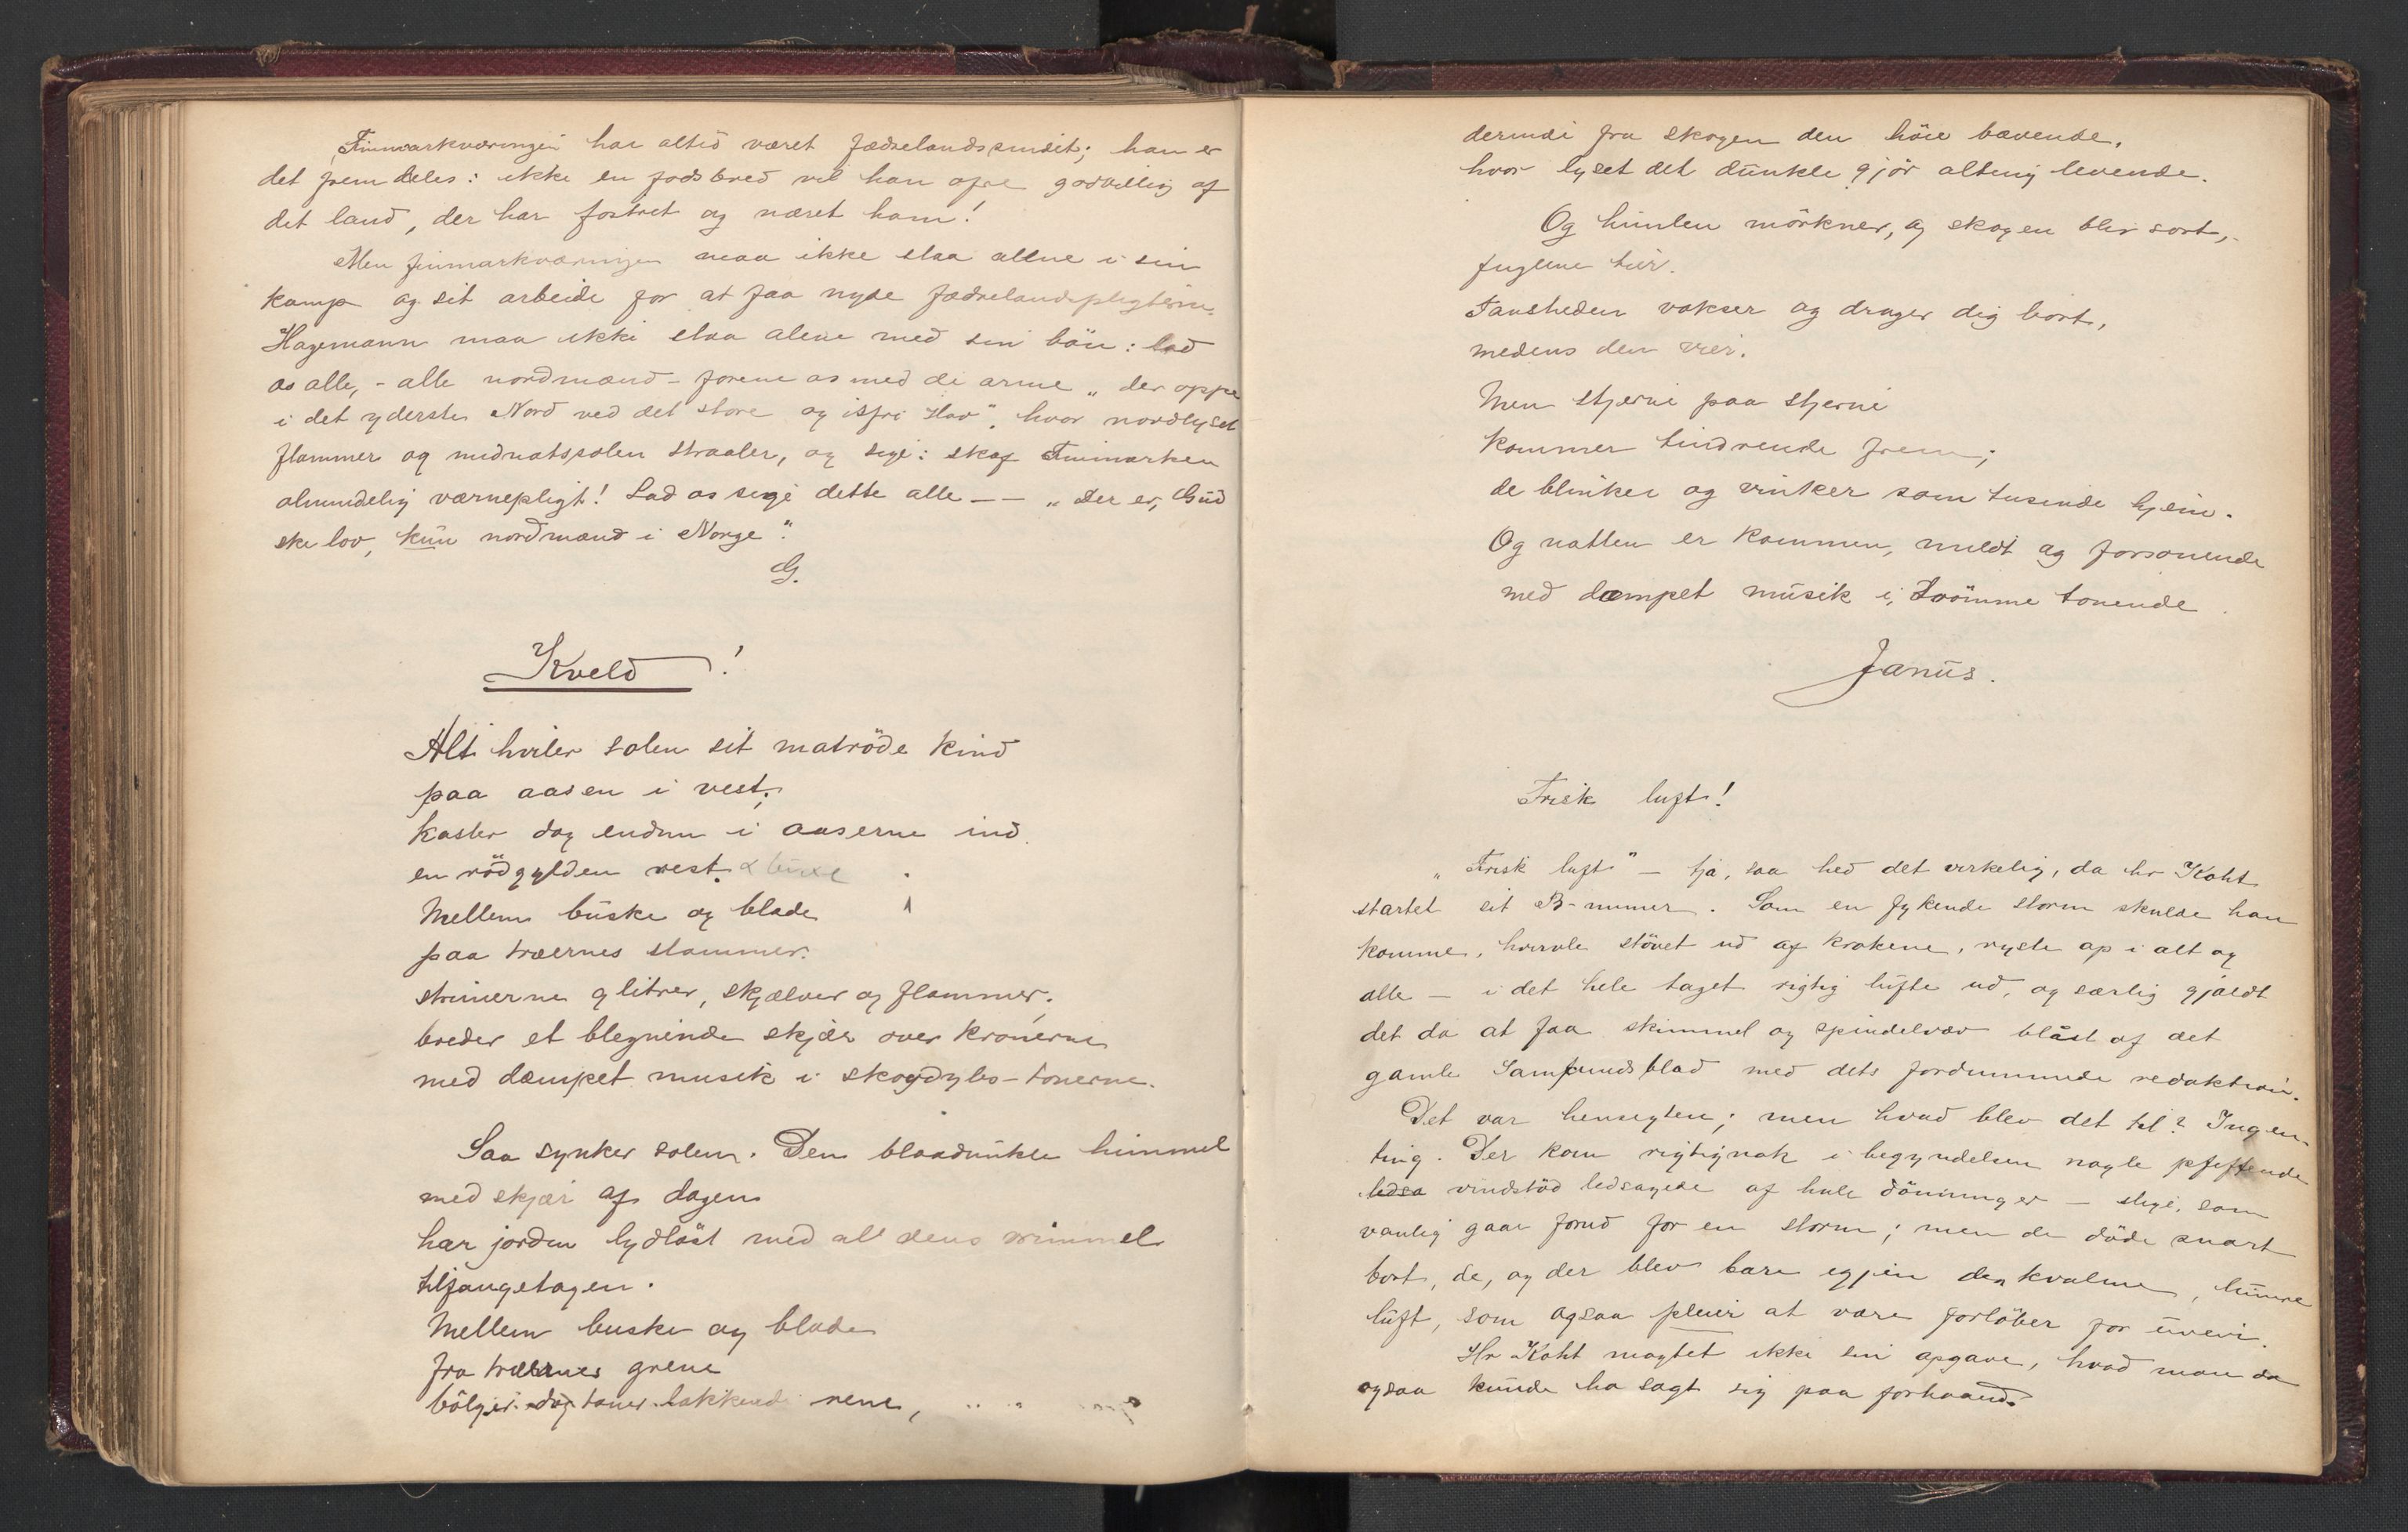 Finmarkværingen har altid været fædrelandssindet; han er
det fremdeles: ikke en fodsbred vil han ofre godvillig af
det land, der har fostret og næret ham!
Men finmarkværingen maa ikke staa allne i sin
kamp og sit arbeide for at faa nyde fædrelandspligterne.
Hagemann maa ikke staa alene med sin bön: lad
os alle, - alle nordmænd - forene os med de arme „der oppe
i det yderste Nord ved det store og isfri Hav", hvor nordlyset
flammer og midnatssolen straaler, og sige: skaf Finmarken
almindelig værnepligt! Lad os sige dette alle -- „Der er, Gud
ske lov, kun nordmænd i Norge".
G.
Kveld!
Alt hviler solen sit matröde kind
paa aasen i vest;
kaster dog endnu i aaserne ind
en rödgylden rest.
Mellem buske og blade
paa træernes stammer.
strimerne glitrer, skjælver og flammer;
breder et blegnende skjær over kronerne
med dæmpet musik i skogdybs-tonerne.
Saa synker solen. Den blaadunkle himmel
med skjær af dagen
har jorden lydløst med all dens vrimmel
tilfangetagen.
Mellem buske og blade
fra træernes grene
bölger dog toner lokkende rene,
derindi fra skogen den höie bævende,
hvor lyset det dunkle gjör alting levende.
Og himlen mörkner, og skogen blir sort,
fuglene tier.
Tausheden vokser og drager dig bort,
medens den vier.
Men stjerne paa stjerne
kommer tindrende frem;
de blinker og vinker som tusinde hjem.
Og natten er kommen, mildt og forsonende
med dæmpet musik i drömme tonende.
Janus.
Frisk luft!
„Frisk luft" - tja, saa hed det virkelig, da hr Koht
startet sit B-numer. Som en fykende storm skulde han
komme, hvirvle stövet ud af krokene, ryste op i alt og
alle - i det hele taget rigtig lufte ud, og særlig gjaldt
det da at faa skimmel og spindelvæv blåst af det
gamle Samfundsblad med dets fordummede redaktion.
Det var hensigten; men hvad blev det til? Ingen-
ting. Der kom rigtignok i begyndelsen nogle pfiffende
ledsa vindstöd ledsagede af hule dönninger - slige, som
vanlig gaar forud for en storm; men de döde snart
bort, de, og der blev bare igjen den kvalme, lumre
luft, som ogsaa pleier at være forlöber for uveir.
Hr Koht magtet ikke sin opgave, hvad man da
ogsaa kunde ha sagt sig paa forhaand.